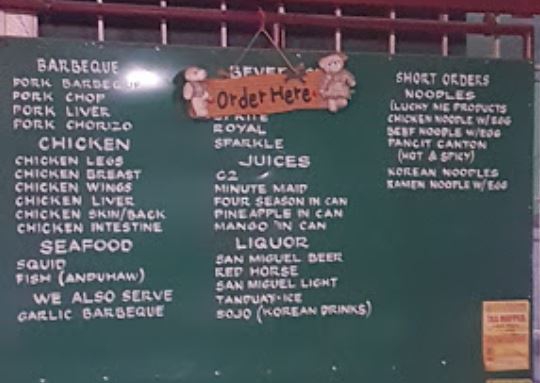 BARBEQUE
PORK BARBEQUE
PORK CHOP
PORK LIVER
PORK CHORIZO
CHICKEN
CHICKEN LEGS
CHICKEN BREAST
CHICKEN WINGS
CHICKEN LIVER
CHICKEN SKIN/BACK
CHICKEN INTESTINE
SEAFOOD
SQUID
FISH (ANDUHAW)
WE ALSO SERVE
GARLIC BARBEQUE
Order Here
SPRITE
ROYAL
SPARKLE
JUICES
C2
MINUTE MAID
FOUR SEASON IN CAN
PINEAPPLE IN CAN
MANGO IN CAN
LIQUOR
SAN MIGUEL BEER
RED HORSE
SAN MIGUEL LIGHT
TANDUAY-ICE
SOJO (KOREAN DRINKS)
SHORT ORDERS
NOODLES
(LUCKY ME PRODUCTS
CHICKEN NOODLE W/EGG
BEEF NOODLE W/EGG
PANCIT CANTON
(HOT & SPICY)
KOREAN NOODLES
RAMEN NOODLE W/EGG